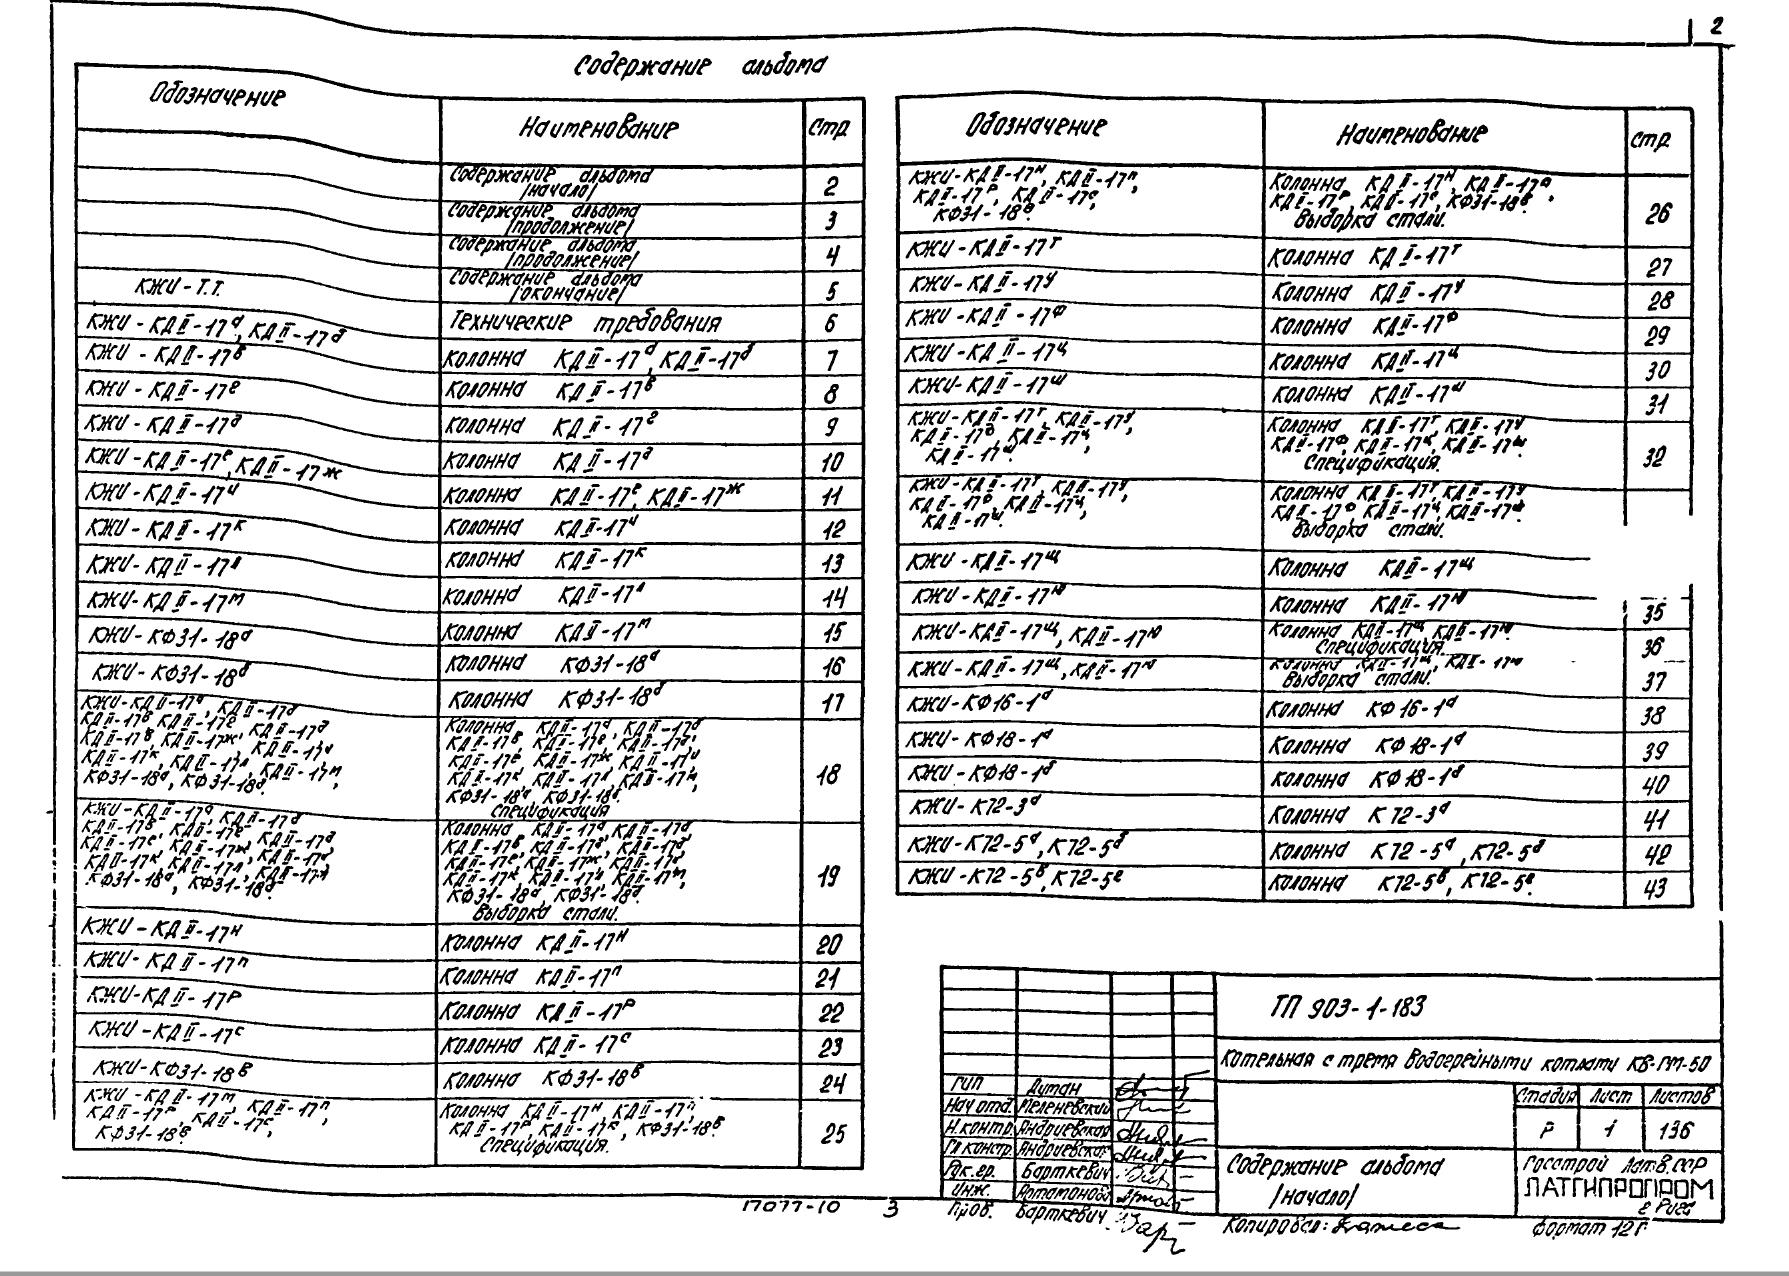 2
Содержание альбома
Обозначение Наименование Стр
Содержание альбома
/начало/ 2
Содержание альбома
/продолжение/ 3
Содержание альбома
/продолжение/ 4
КЖИ-Т.Т. Содержание альбома
/окончание/ 5
КЖИ-КДII-17а, КДII-17б Технические требования 6
КЖИ-КДII-17в Колонна КДII-17а, КДII-17б 7
КЖИ-КДII-17г Колонна КДII-17в 8
КЖИ-КДII-17д Колонна КДII-17г 9
КЖИ-КДII-17е, КДII-17ж Колонна КДII-17д 10
КЖИ-КДII-17и Колонна КДII-17е, КДII-17ж 11
КЖИ-КДII-17к Колонна КДII-17и 12
КЖИ-КДII-17л Колонна КДII-17к 13
КЖИ-КДII-17м Колонна КДII-17л 14
КЖИ-КФ31-18а Колонна КДII-17м 15
КЖИ-КФ31-18б Колонна КФ31-18а 16
Колонна КФ31-18б 17
КЖИ-КДII-17а, КДII-17б
КДII-17в, КДII-17г, КДII-17д
КДII-17е, КДII-17ж, КДII-17и
КДII-17к, КДII-17л, КДII-17м,
КФ31-18а, КФ31-18б.
Колонна КДII-17а, КДII-17б
КДII-17в, КДII-17г, КДII-17д,
КДII-17е, КДII-17ж, КДII-17и
КДII-17к, КДII-17л, КДII-17м,
КФ31-18а, КФ31-18б.
Спецификация 18
КЖИ-КДII-17а, КДII-17б
КДII-17в, КДII-17г, КДII-17д
КДII-17е, КДII-17ж, КДII-17и,
КДII-17к, КДII-17л, КДII-17м
КФ31-18а, КФ31-18б.
Колонна КДII-17а, КДII-17б
КДII-17в, КДII-17г, КДII-17д
КДII-17е, КДII-17ж, КДII-17и,
КДII-17к, КДII-17л, КДII-17м,
КФ31-18а, КФ31-18б.
Выборка стали. 19
КЖИ-КДII-17н Колонна КДII-17н 20
КЖИ-КДII-17п Колонна КДII-17п 21
КЖИ-КДII-17р Колонна КДII-17р 22
КЖИ-КДII-17с Колонна КДII-17с 23
КЖИ-КФ31-18в Колонна КФ31-18в 24
КЖИ-КДII-17н, КДII-17п,
КДII-17р, КДII-17с,
КФ31-18в.
Колонна КДII-17н, КДII-17п,
КДII-17р, КДII-17с, КФ31-18в.
Спецификация. 25
Обозначение Наименование Стр
КЖИ-КДII-17н, КДII-17п,
КДII-17р, КДII-17с,
КФ31-18в
Колонна КДII-17н, КДII-17п,
КДII-17р, КДII-17с, КФ31-18в.
Выборка стали. 26
КЖИ-КДII-17т Колонна КДII-17т 27
КЖИ-КДII-17у Колонна КДII-17у 28
КЖИ-КДII-17ф Колонна КДII-17ф 29
КЖИ-КДII-17ц Колонна КДII-17ц 30
КЖИ-КДII-17ш Колонна КДII-17ш 31
КЖИ-КДII-17т, КДII-17у,
КДII-17ф, КДII-17ц,
КДII-17ш.
Колонна КДII-17т, КДII-17у
КДII-17ф, КДII-17ц, КДII-17ш.
Спецификация. 32
КЖИ-КДII-17т, КДII-17у,
КДII-17ф, КДII-17ц,
КДII-17ш.
Колонна КДII-17т, КДII-17у
КДII-17ф, КДII-17ц, КДII-17ш.
Выборка стали.
КЖИ-КДII-17щ Колонна КДII-17щ
КЖИ-КДII-17ю Колонна КДII-17ю 35
КЖИ-КДII-17щ, КДII-17ю Колонна КДII-17щ, КДII-17ю.
Спецификация. 36
КЖИ-КДII-17щ, КДII-17ю Колонна КДII-17щ, КДII-17ю
Выборка стали. 37
КЖИ-КФ16-1а Колонна КФ16-1а 38
КЖИ-КФ18-1а Колонна КФ18-1а 39
КЖИ-КФ18-1б Колонна КФ18-1б 40
КЖИ-К72-3а Колонна К72-3а 41
КЖИ-К72-5а, К72-5б Колонна К72-5а, К72-5б 42
КЖИ-К72-5в, К72-5г Колонна К72-5в, К72-5г. 43
ТП 903-1-183
Котельная с тремя водогрейными котлами КВ-ГМ-50
ГИП Дитан
Нач отд. Меленевский
Н.контр. Андриевская
Гл констр. Андриевская
Рук.гр. Барткевич
Инж. Артамонова
Пров. Барткевич
Стадия Лист Листов
Р 1 136
Содержание альбома
/начало/
Госстрой Латв.ССР
ЛАТГИПРОПРОМ
г Рига
17077-10 3
Копировал:
Формат 12Г